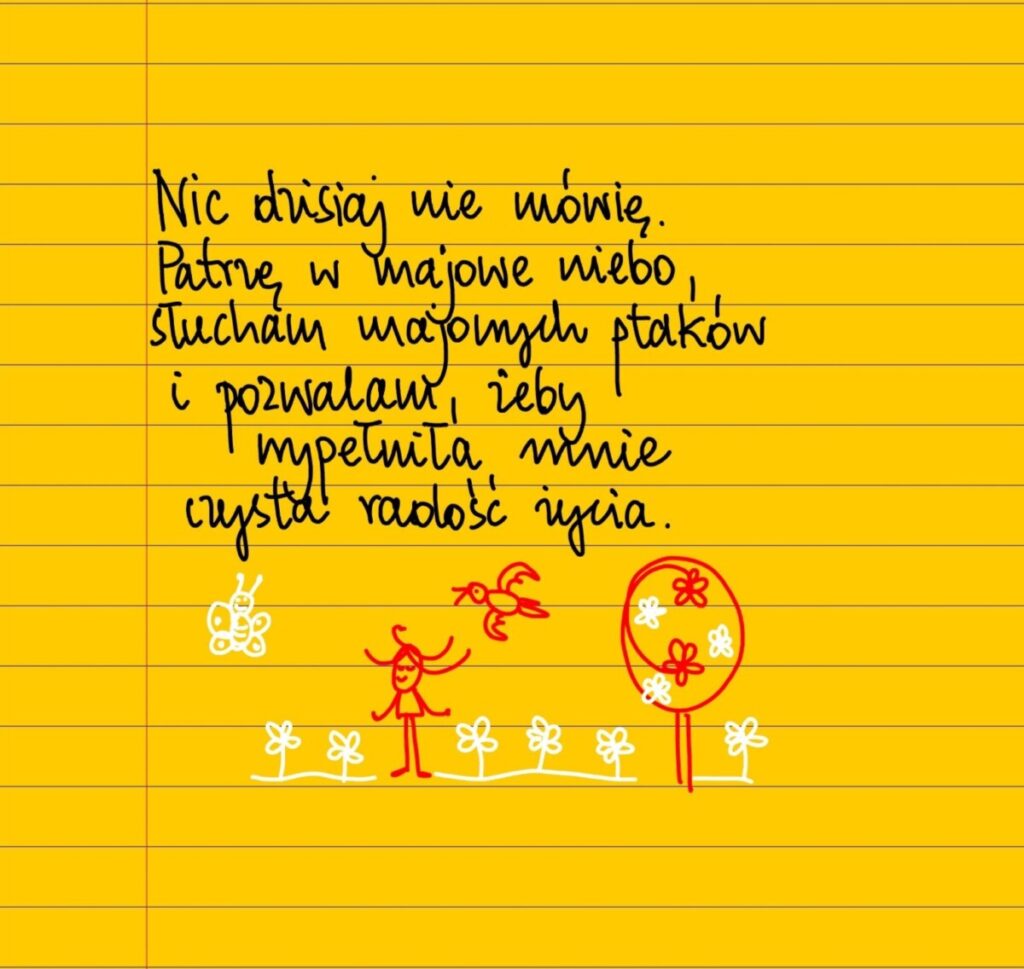 Nic dzisiaj nie mówię.
Patrzę w majowe niebo,
słucham majowych ptaków
i pozwalam, żeby
wypełniła mnie
czysta radość życia.